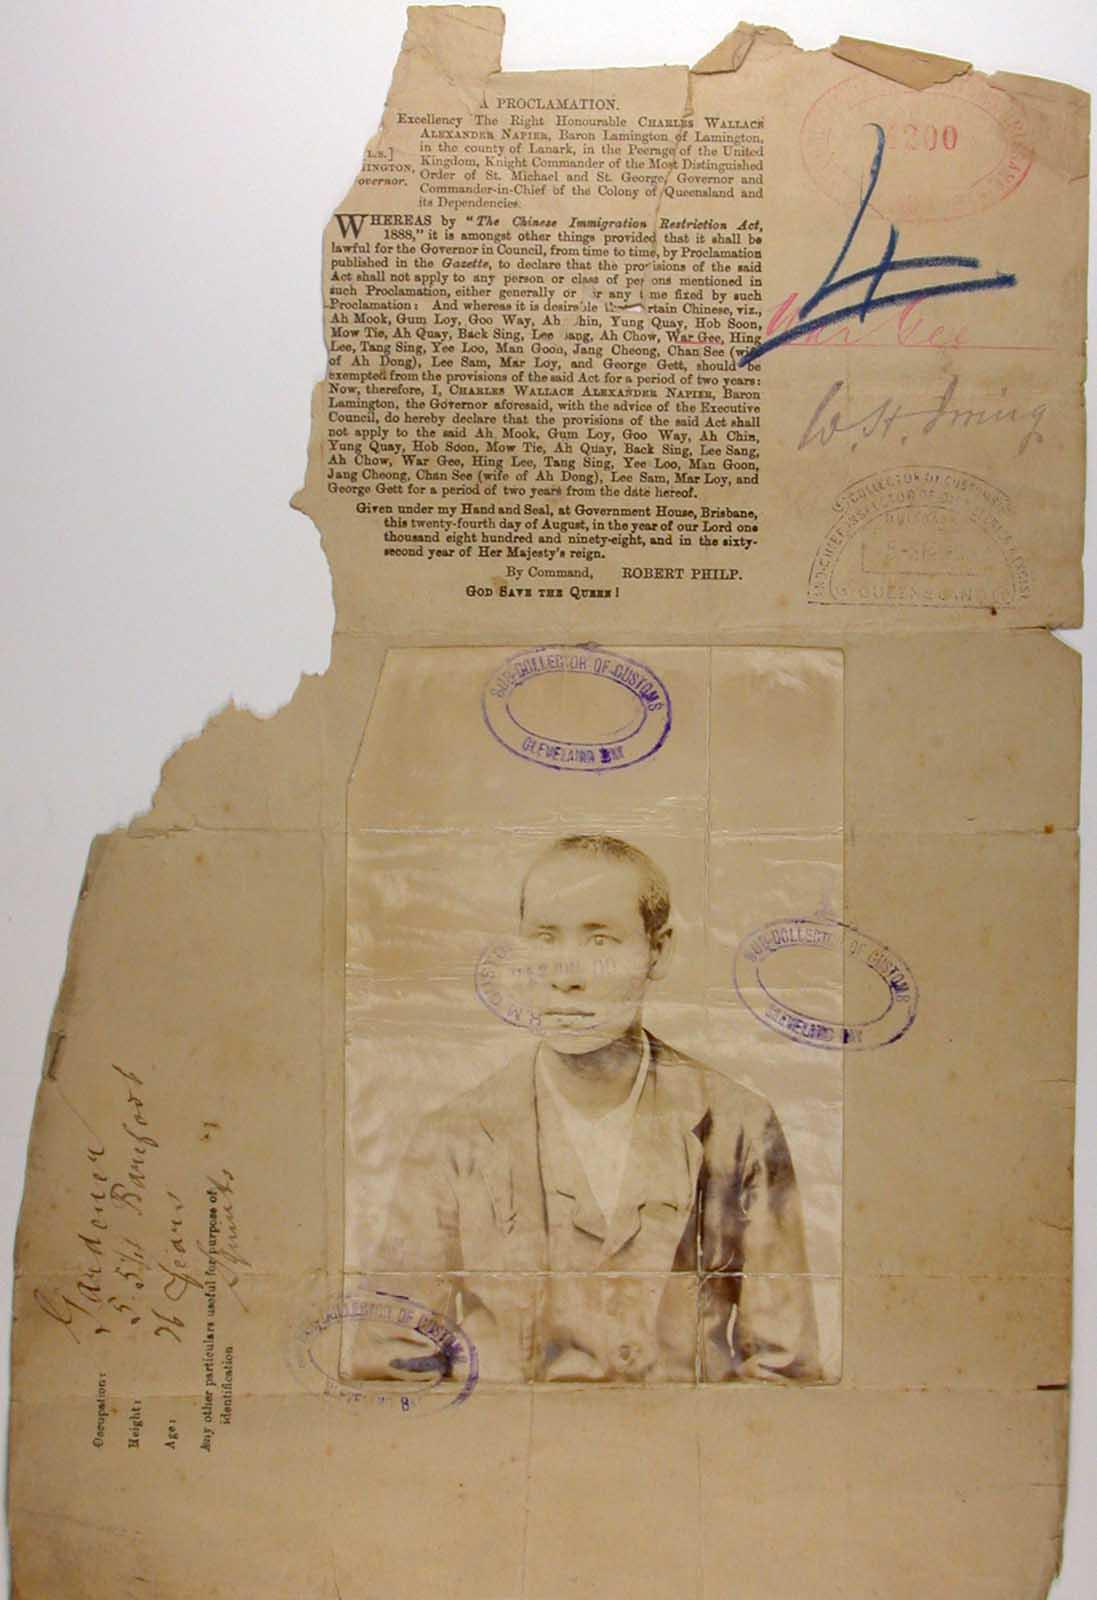 A PROCLAMATION.
Excellency The Right Honourable CHARLES WALLACE
ALEXANDER NAPIER, Baron Lamington of Lamington,
in the county of Lanark, in the Peerage of the United
Kingdom, Knight Commander of the Most Distinguished
Order of St. Michael and St. George, Governor and
Commander-in-Chief of the Colony of Queensland and
its Dependencies.
L.S.]
INGTON,
overnor.
WHEREAS by "The Chinese Immigration Restriction Act,
1888," it is amongst other things provided that it shall be
lawful for the Governor in Council, from time to time, by Proclamation
published in the Gazette, to declare that the provisions of the said
Act shall not apply to any person or class of persons mentioned in
such Proclamation, either generally or for any time fixed by such
Proclamation: And whereas it is desirable that certain Chinese, viz.,
Ah Mook, Gum Loy, Goo Way, Ah Chin, Yung Quay, Hob Soon,
Mow Tie, Ah Quay, Back Sing, Lee Sang, Ah Chow, War Gee, Hing
Lee, Tang Sing, Yee Loo, Man Goon, Jang Cheong, Chan See (wife
of Ah Dong), Lee Sam, Mar Loy, and George Gett, should be
exempted from the provisions of the said Act for a period of two years:
Now, therefore, I, CHARLES WALLACE ALEXANDER NAPIER, Baron
Lamington, the Governor aforesaid, with the advice of the Executive
Council, do hereby declare that the provisions of the said Act shall
not apply to the said Ah Mook, Gum Loy, Goo Way, Ah Chin,
Yung Quay, Hob Soon, Mow Tie, Ah Quay, Back Sing, Lee Sang,
Ah Chow, War Gee, Hing Lee, Tang Sing, Yee Loo, Man Goon,
Jang Cheong, Chan See (wife of Ah Dong), Lee Sam, Mar Loy, and
George Gett for a period of two years from the date hereof.
Given under my Hand and Seal, at Government House, Brisbane,
this twenty-fourth day of August, in the year of our Lord one
thousand eight hundred and ninety-eight, and in the sixty-
second year of Her Majesty's reign.
By Command, ROBERT PHILP.
GOD SAVE THE QUEEN!
200
4
War Gee
W. H. Irving
COLLECTOR OF CUSTOMS
QUEENSLAND
SUB-COLLECTOR OF CUSTOMS
CLEVELAND BAY
SUB-COLLECTOR OF CUSTOMS
CLEVELAND BAY
H.M. CUSTOMS
COLLECTOR OF CUSTOMS
Occupation: Gardener
Height: 5.5½ Barefoot
Age: 26 Years
Any other particulars useful for purpose of
identification